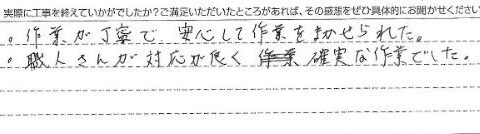 実際に工事を終えていかがでしたか?ご満足いただいたところがあれば、その感想をぜひ具体的にお聞かせください
。作業が丁寧で 安心して作業をまかせられた。
。職人さんが対応が良く 確実な作業でした。